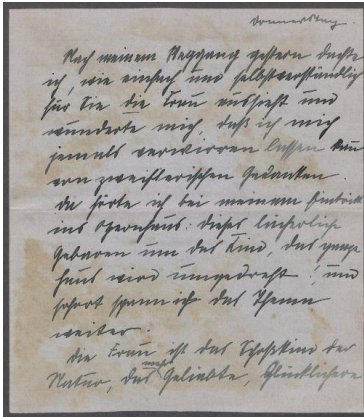 Donnerstag
Nach meinem Weggang gestern dachte
ich, wie einfach und selbstverständlich
für Sie die Frau aussieht und
wunderte mich, daß ich mich
jemals verwirren lassen kann
von zweiflerischen Gedanken.
Da hörte ich bei meinem
ins Opernhaus: dieses lächerliche
Gebaren um das Kind, das ganze
Haus wird umgedreht! und
sofort spann ich das Thema
weiter.
Die Frau ist das Schoßkind der
Natur, das mehr Geliebte, Glücklichere